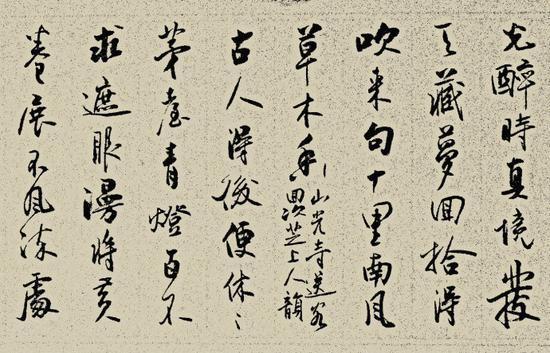 光醉時真境發
天藏夢回拾得
吹来句十里南風
草木香
山光寺送客
回次芝上人韻
古人得後便休〻
茅屋青燈百不
求遮眼漫將黄
卷展不風流處